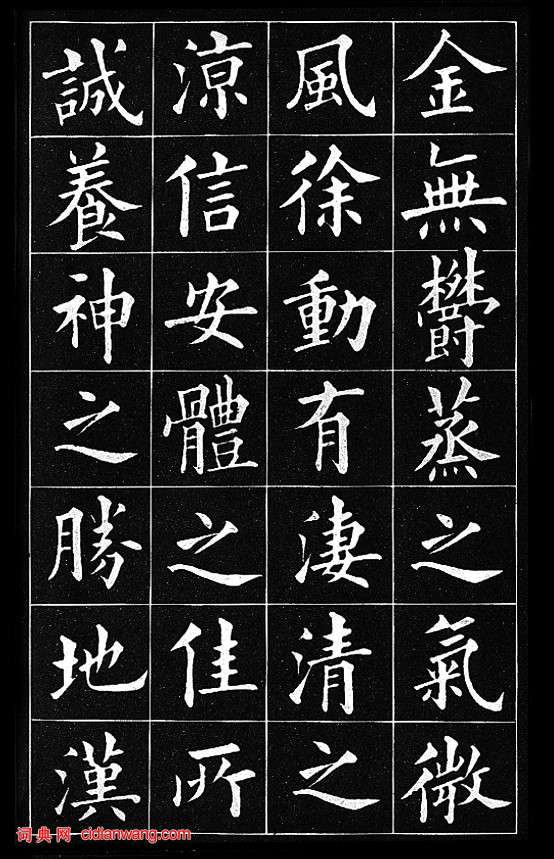 金無鬱蒸之氣微
風徐動有淒清之
涼信安體之佳所
誠養神之勝地漢
词典网 cidianwang.com